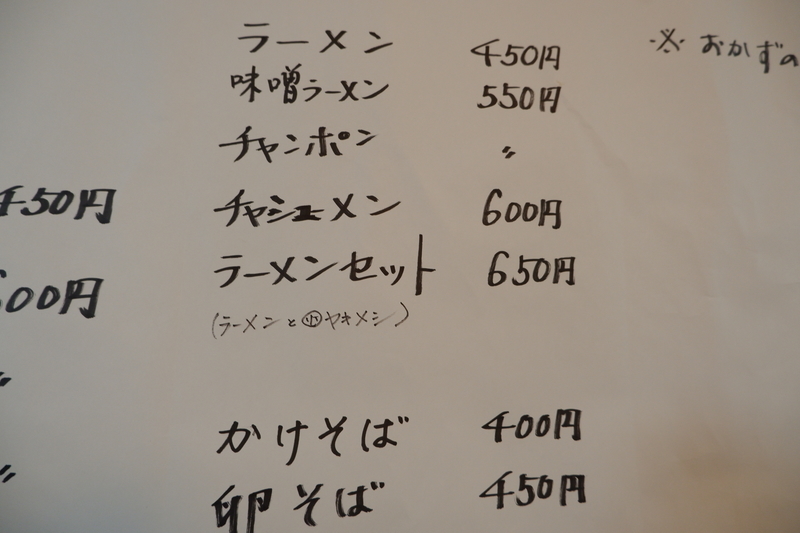 ラーメン 450円
味噌ラーメン 550円
チャンポン 〃
チャシューメン 600円
ラーメンセット 650円
(ラーメンと㊥ヤキメシ)
かけそば 400円
卵そば 450円
450円
00円
〃
〃
※ おかずの